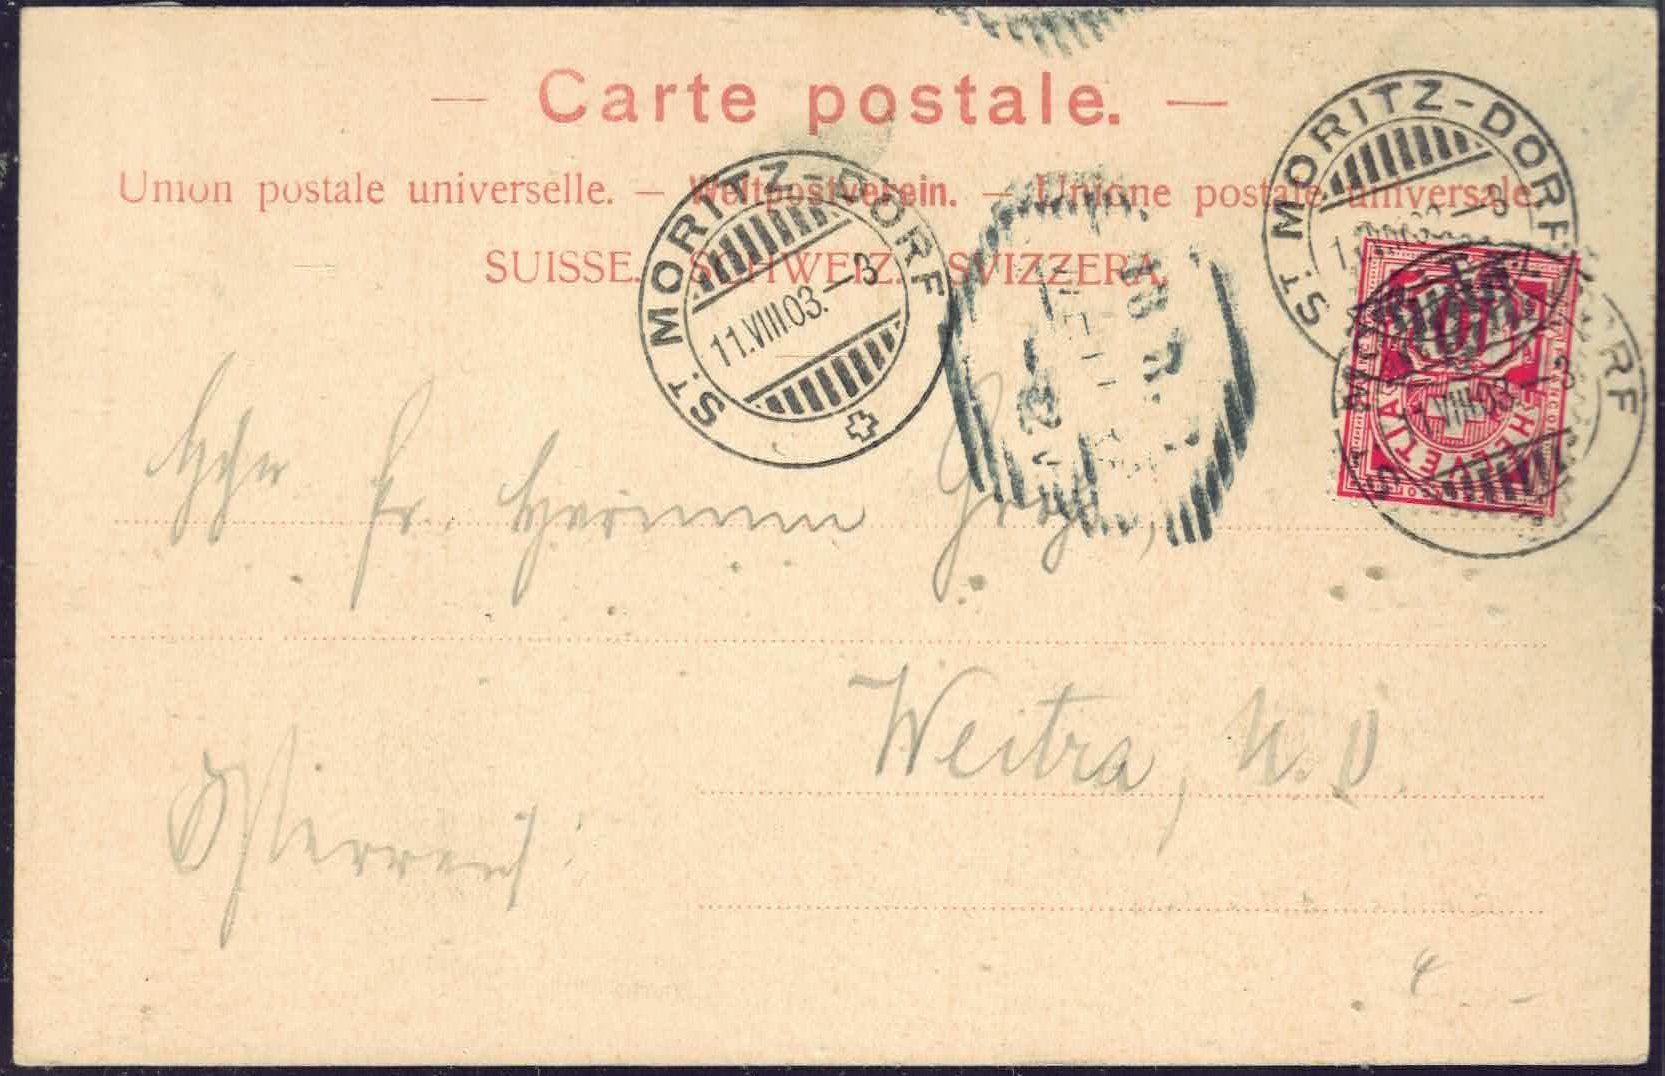 — Carte postale. —
Union postale universelle. — Weltpostverein. — Unione postale universale.
SUISSE. SCHWEIZ. SVIZZERA.
ST. MORITZ-DORF
11.VIII.03.–3
ST. MORITZ-DORF
–3
10
HELVETIA
ST. M DORF
11.VIII.03.–3
Fr. Hermann
Weitra, N. Ö.
Österreich